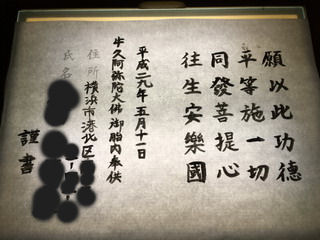 願以此功德
平等施一切
同發菩提心
往生安樂國
平成二九年五月十一日
牛久阿弥陀大佛御胎内奉供
住所 横浜市港北区
氏名
謹書